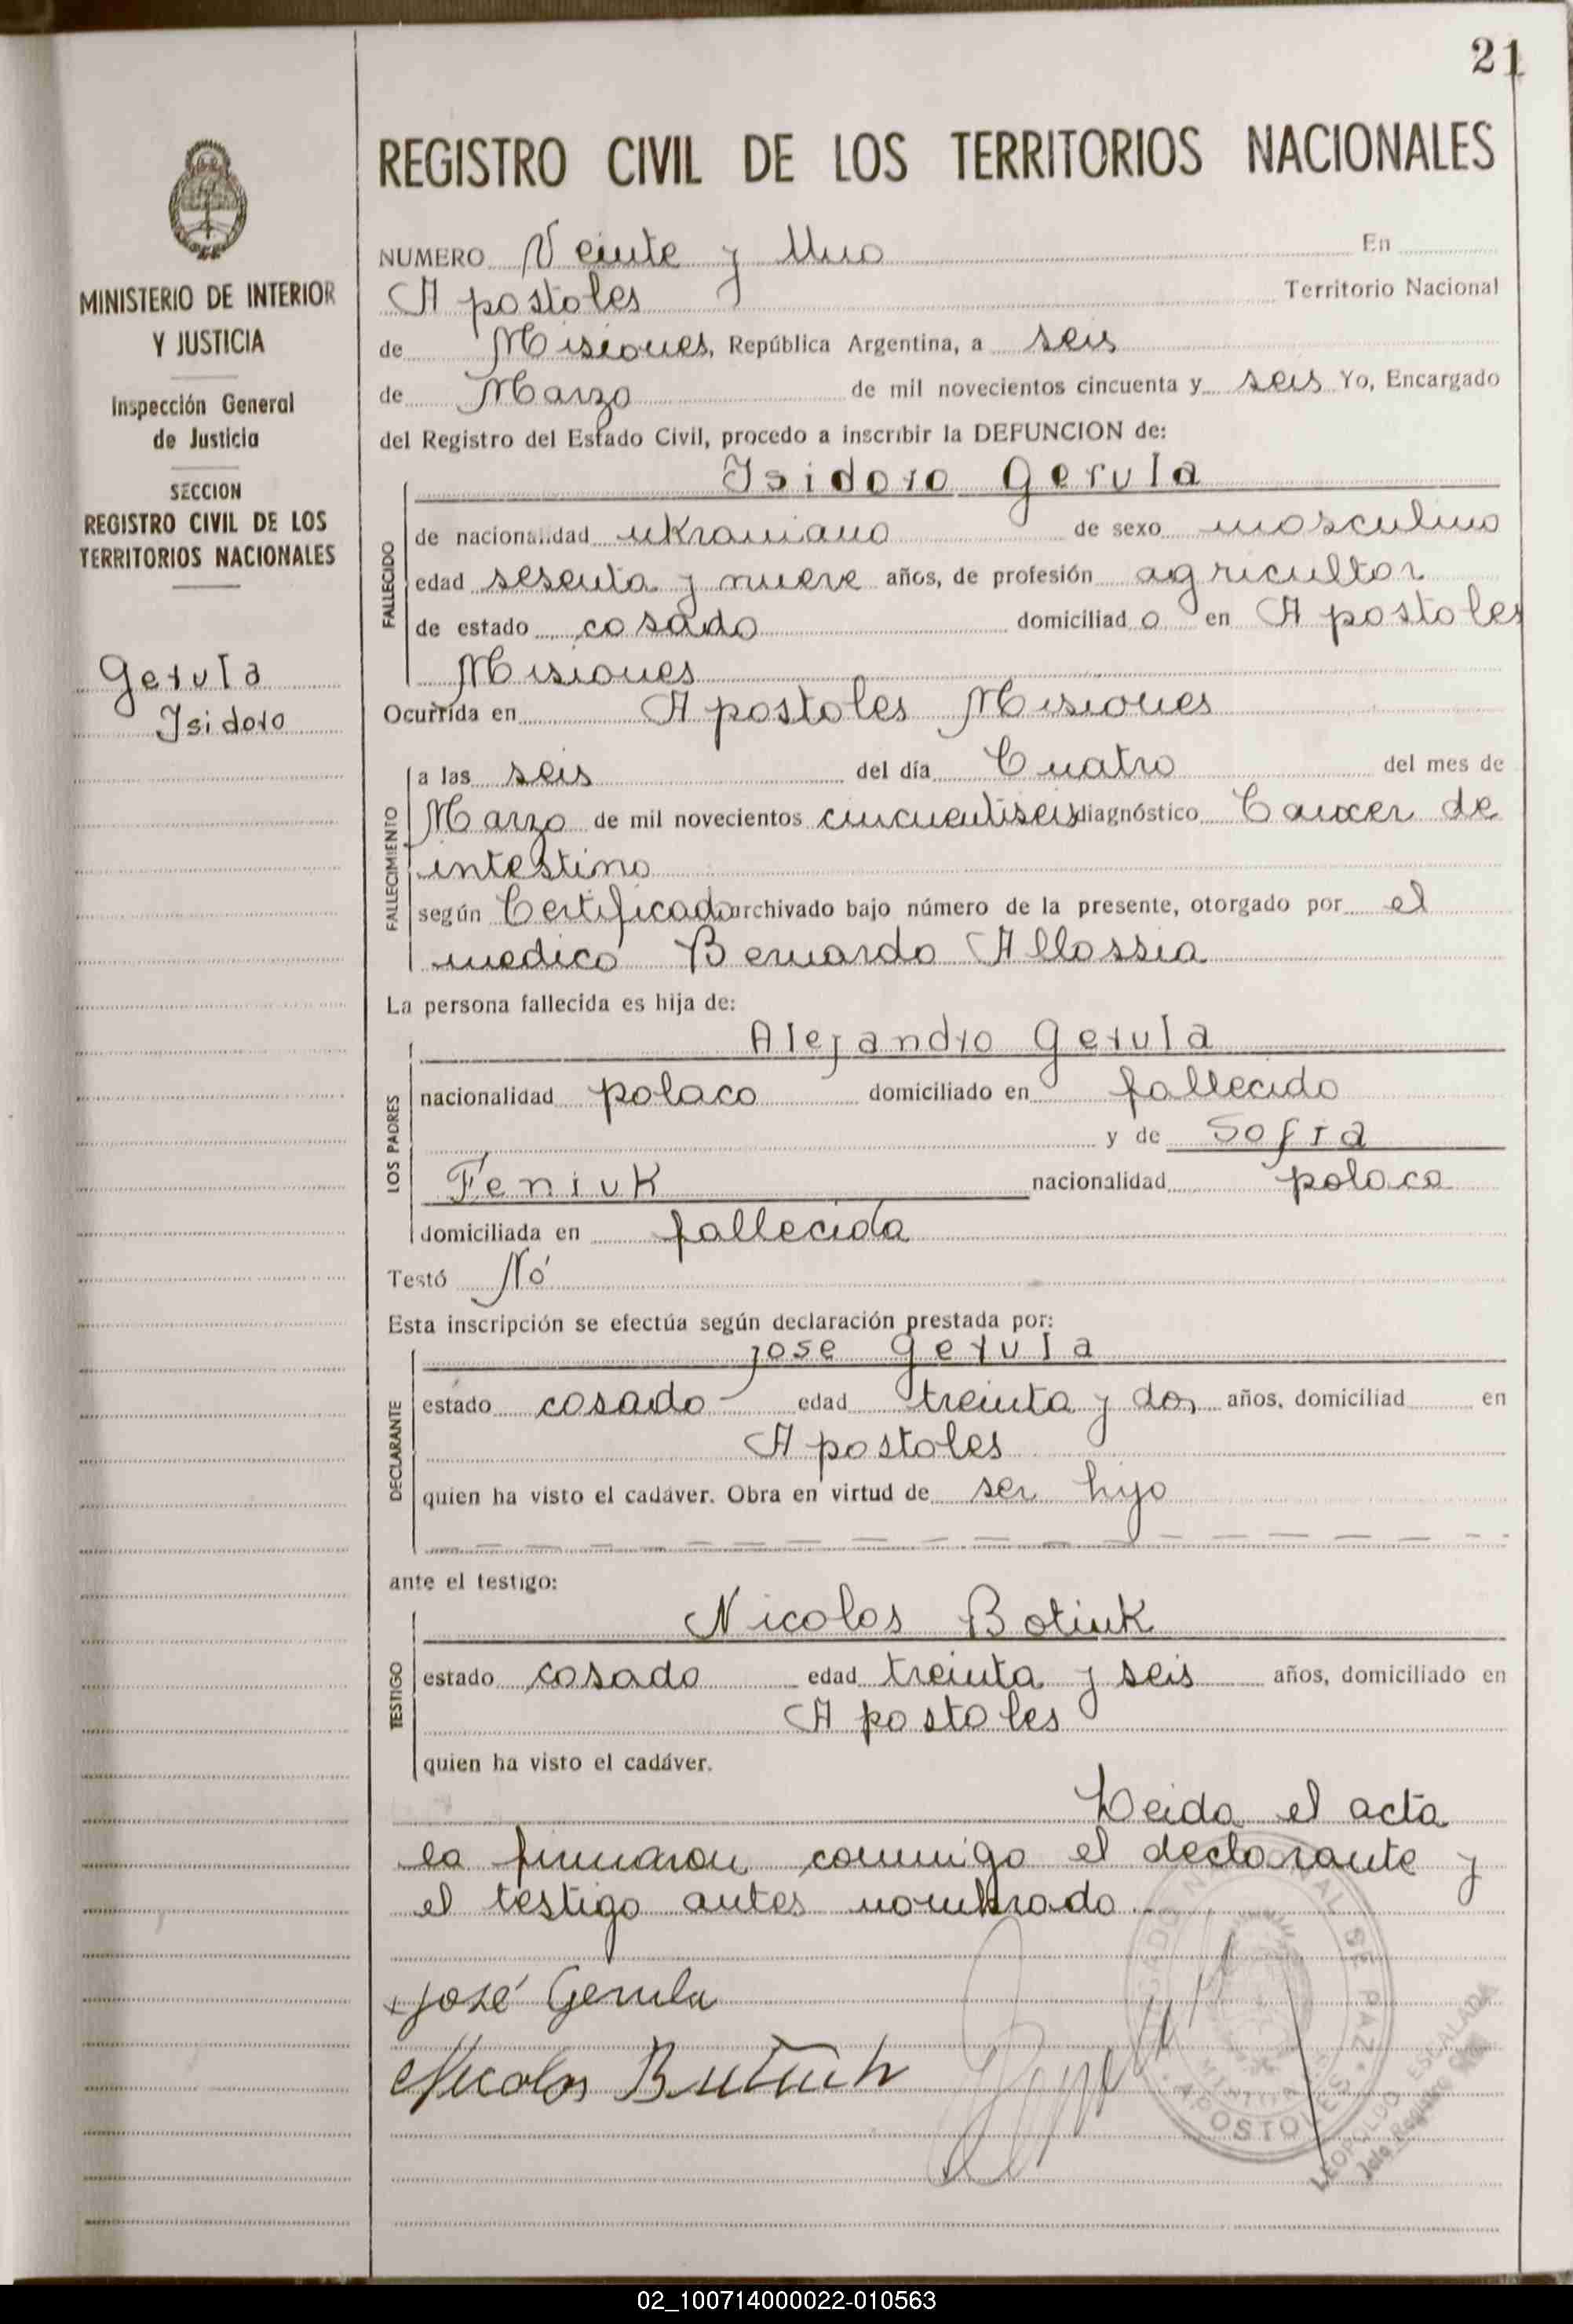 21
REGISTRO CIVIL DE LOS TERRITORIOS NACIONALES
MINISTERIO DE INTERIOR
Y JUSTICIA
Inspección General
de Justicia
SECCION
REGISTRO CIVIL DE LOS
TERRITORIOS NACIONALES
Gerula
Isidoro
NUMERO Veinte y Uno En
Apostoles Territorio Nacional
de Misiones, República Argentina, a seis
de Marzo de mil novecientos cincuenta y seis Yo, Encargado
del Registro del Estado Civil, procedo a inscribir la DEFUNCION de:
Isidoro Gerula
FALLECIDO
de nacionalidad ukraniano de sexo masculino
edad sesenta y nueve años, de profesión agricultor
de estado casado domiciliado en Apostoles
Misiones
Ocurrida en Apostoles Misiones
FALLECIMIENTO
a las seis del día Cuatro del mes de
Marzo de mil novecientos cincuentiseis diagnóstico Cancer de
intestino
según Certificado archivado bajo número de la presente, otorgado por el
medico Bernardo Allossia
La persona fallecida es hija de:
LOS PADRES
Alejandro Gerula
nacionalidad polaco domiciliado en fallecido
y de Sofia
Feniuk nacionalidad polaca
domiciliada en fallecida
Testó Nó
Esta inscripción se efectúa según declaración prestada por:
DECLARANTE
jose gerula
estado casado edad treinta y dos años, domiciliad en
Apostoles
quien ha visto el cadáver. Obra en virtud de ser hijo
ante el testigo:
TESTIGO
Nicolas Botiuk
estado casado edad treinta y seis años, domiciliado en
Apostoles
quien ha visto el cadáver.
Leida el acta
la firmaron conmigo el declarante y
el testigo antes nombrado
José Gerula
Nicolas Butiuk
APOSTOLES
LEOPOLDO ESCALADA
Jefe Registro Civil
02_100714000022-010563